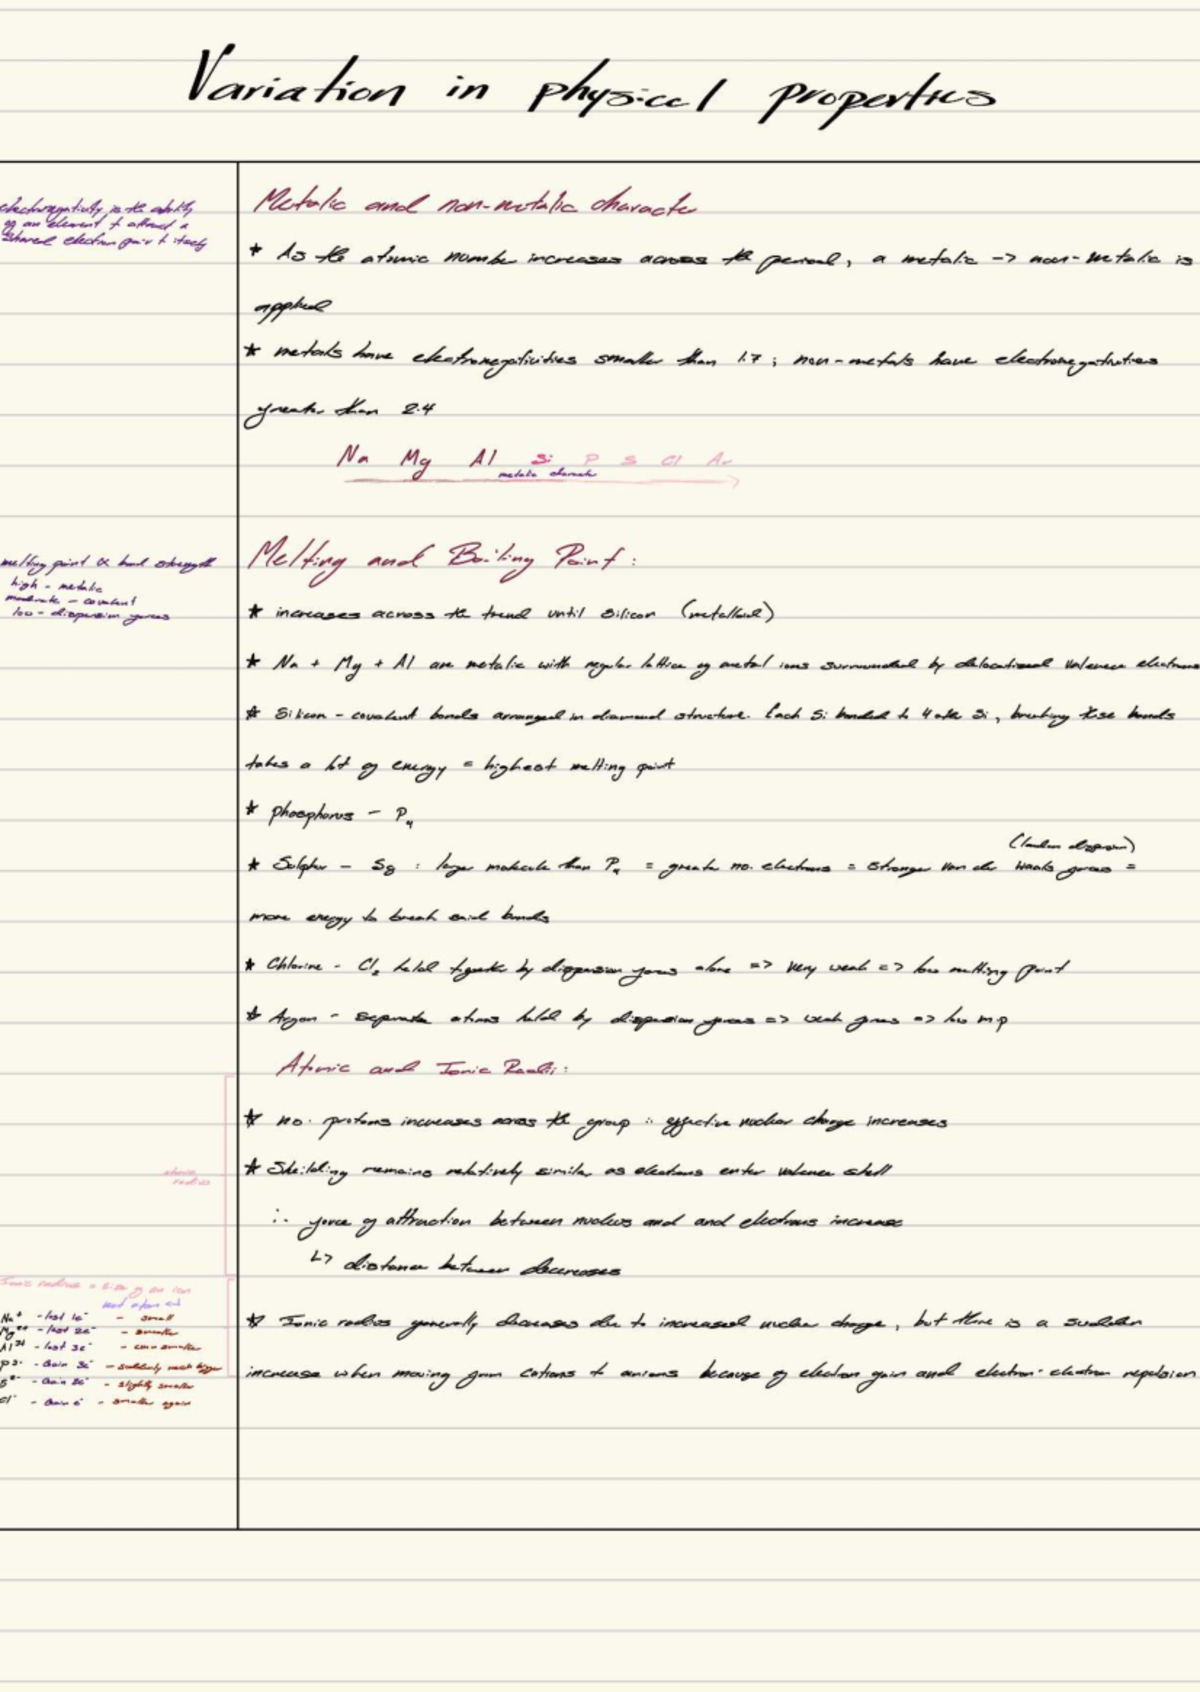 Variation in physical properties
electronegativity is the ability
of an element to attract a
shared electron pair to itself
Metalic and non-metalic character
* As the atomic number increases across the period, a metalic -> non-metalic is
applied
* metals have electronegativities smaller than 1.7 ; non-metals have electronegativities
greater than 2.4
Na Mg Al Si P S Cl Ar
metalic character
melting point ∝ bond strength
high - metalic
moderate - covalent
low - dispersion forces
Melting and Boiling Point :
* increases across the trend until silicon (metalloid)
* Na + Mg + Al are metalic with regular lattice of metal ions surrounded by delocalised valence electrons
* Silicon - covalent bonds arranged in diamond structure. Each Si bonded to 4 other Si, breaking these bonds
takes a lot of energy = highest melting point
* phosphorus - P₄
(london dispersion)
* Sulpher - S8 : larger molecule than P₄ = greater no. electrons = stronger van der waals forces =
more energy to break said bonds
* Chlorine - Cl₂ held together by dispersion forces alone => very weak => low melting point
* Argon - separate atoms held by dispersion forces => weak forces => low m.p
Atomic and Ionic Radii:
* no. protons increases across the group ∴ effective nuclear charge increases
* Sheilding remains relatively similar as electrons enter valence shell
atomic
radius
∴ force of attraction between nucleus and and electrons increase
↳ distance between decreases
Ionic radius = size of an ion
not atom
Na⁺ - lost 1e⁻ - small
Mg²⁺ - lost 2e⁻ - smaller
Al³⁺ - lost 3e⁻ - even smaller
P³⁻ - Gain 3e⁻ - suddenly much bigger
S²⁻ - Gain 2e⁻ - slightly smaller
Cl⁻ - Gain e⁻ - smaller again
* Ionic radius generally decreases due to increased nuclear charge, but there is a sudden
increase when moving from cations to anions because of electron gain and electron-electron repulsion